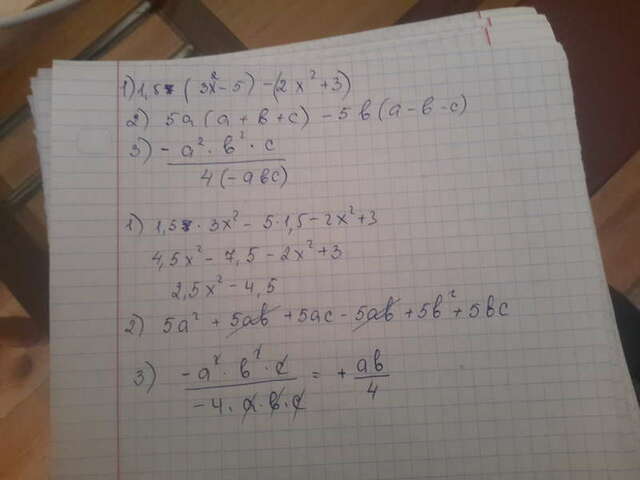 1) 1,5 (3x² - 5) - (2x² + 3)
2) 5a (a + b + c) - 5b (a - b - c)
3) - a² · b² · c
4 (- abc)
1) 1,5 · 3x² - 5 · 1,5 - 2x² + 3
4,5x² - 7,5 - 2x² + 3
2,5x² - 4,5
2) 5a² + 5ab + 5ac - 5ab + 5b² + 5bc
3) - a² · b² · c = + ab
- 4 · a · b · c 4